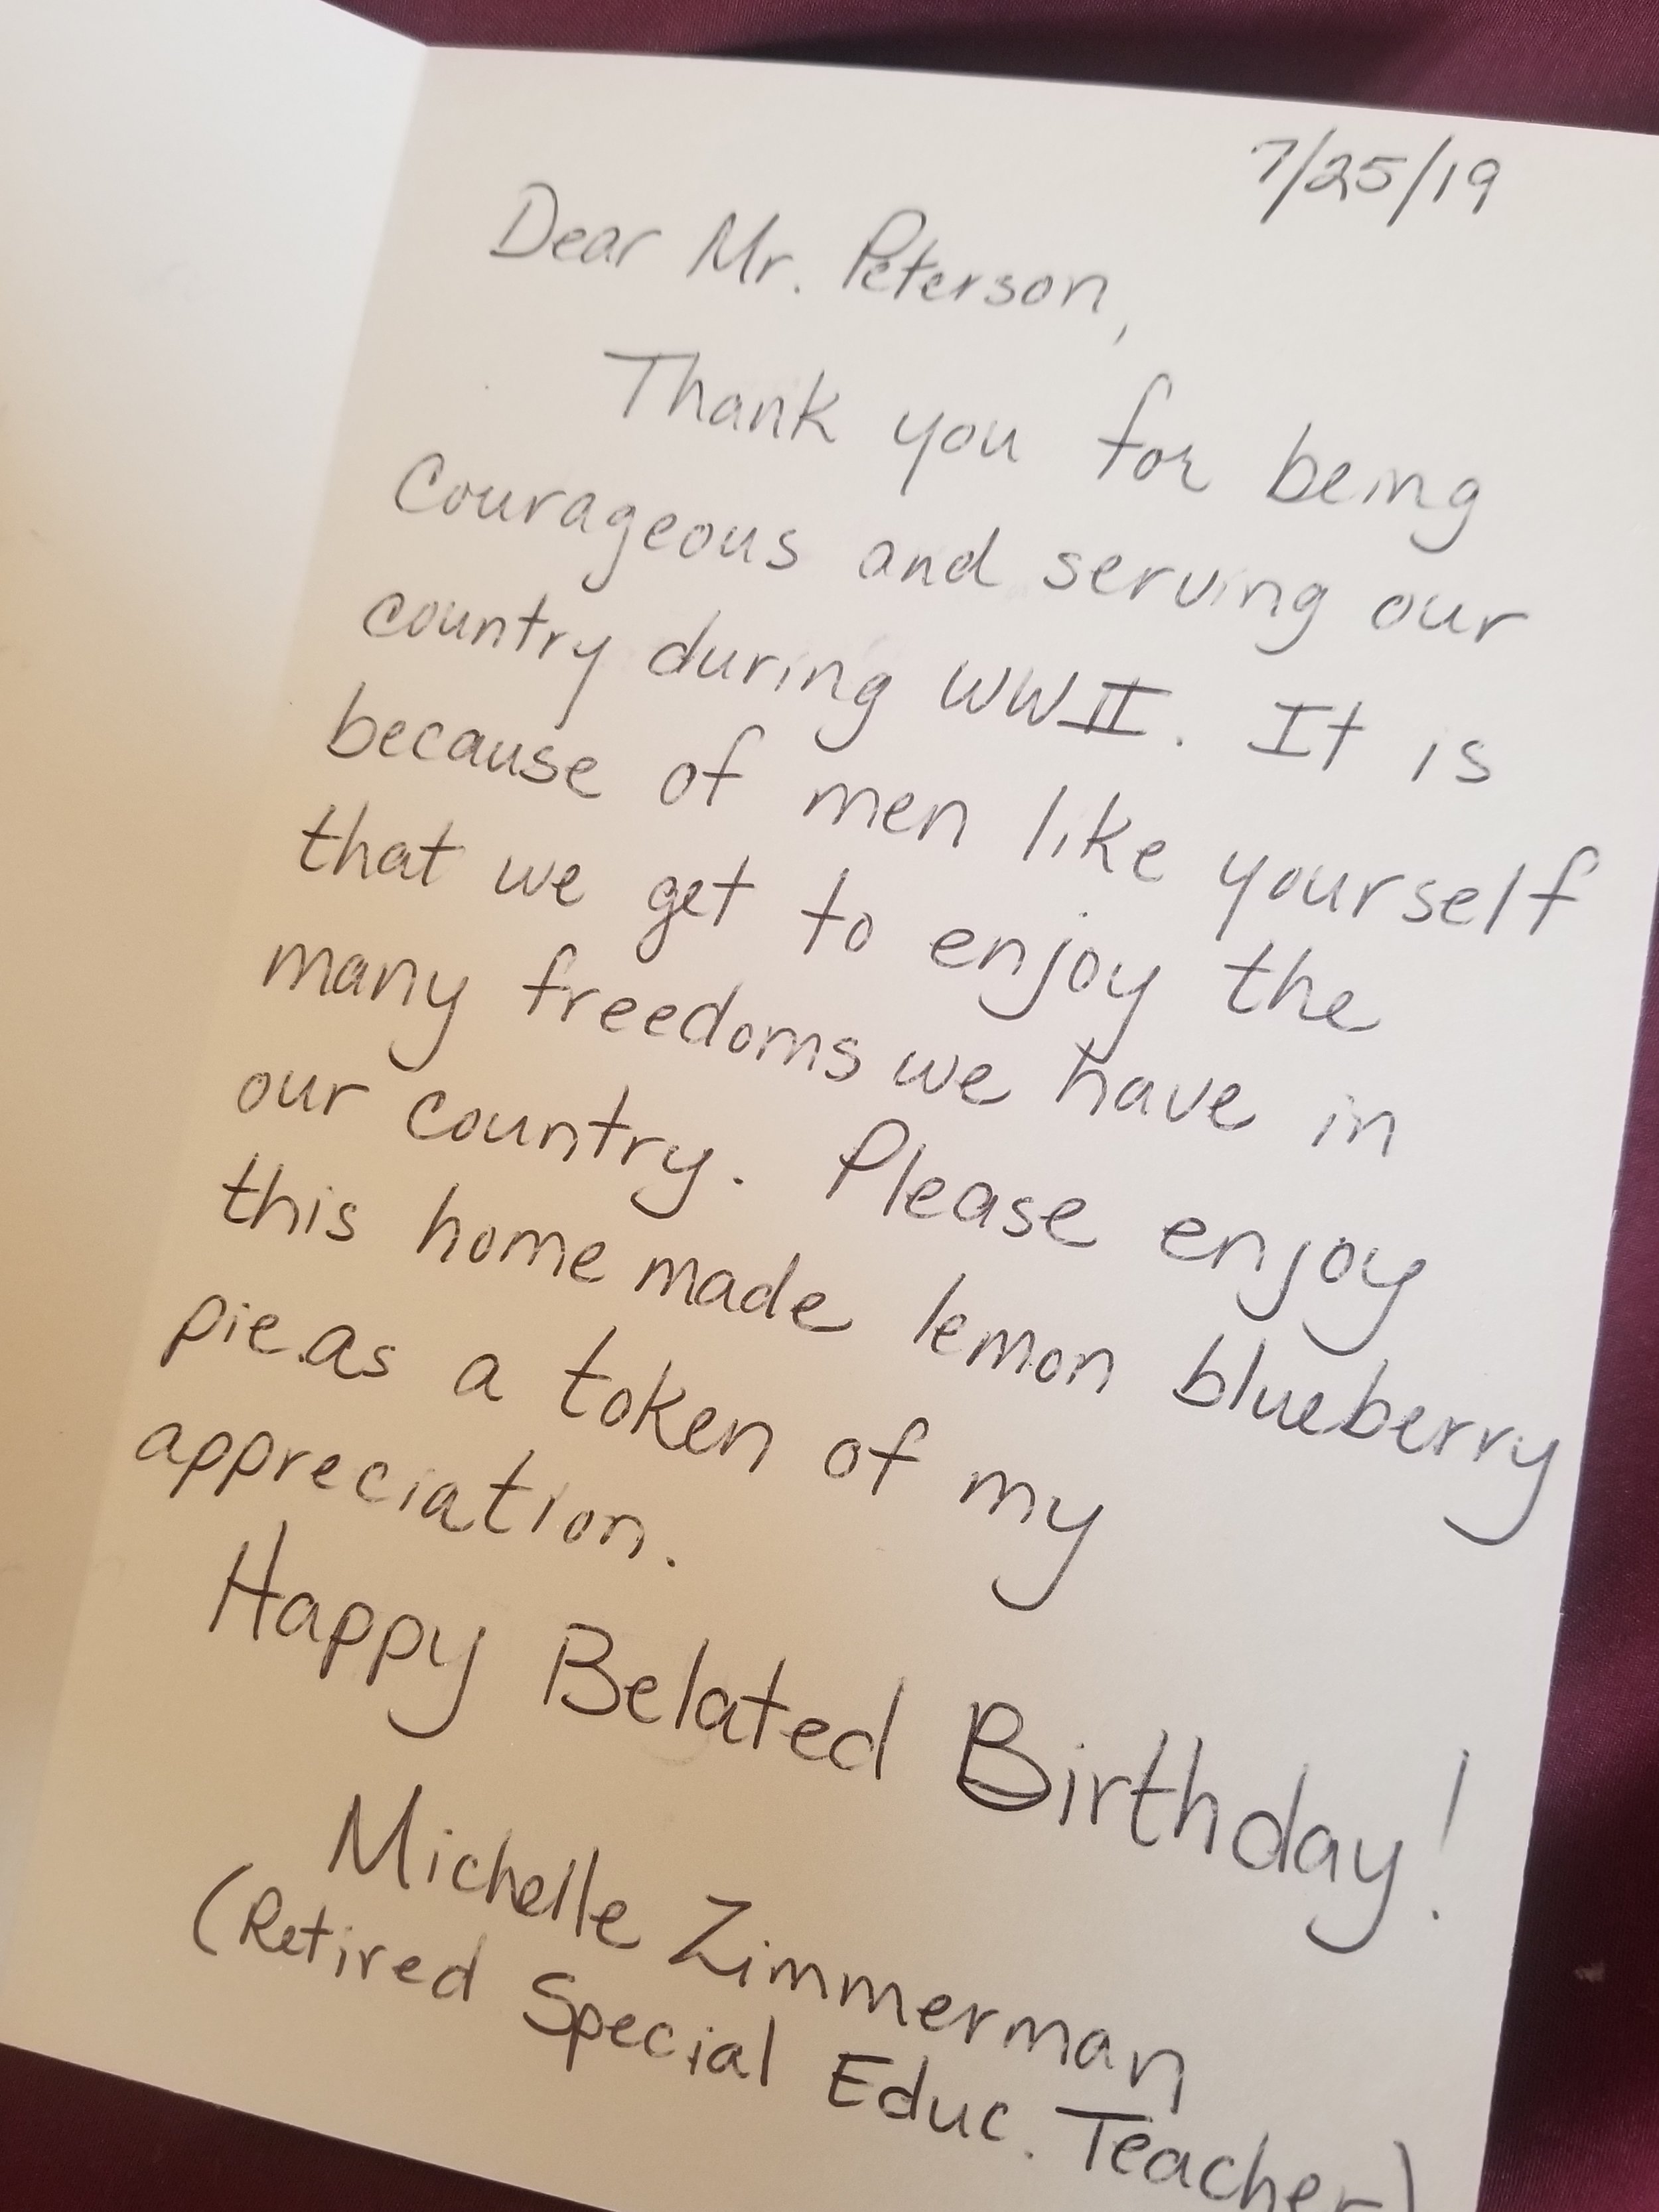 7/25/19
Dear Mr. Peterson,
Thank you for being
Courageous and serving our
country during WWII. It is
because of men like yourself
that we get to enjoy the
many freedoms we have in
our country. Please enjoy
this home made lemon blueberry
pie as a token of my
appreciation.
Happy Belated Birthday!
Michelle Zimmerman
(Retired Special Educ. Teacher)